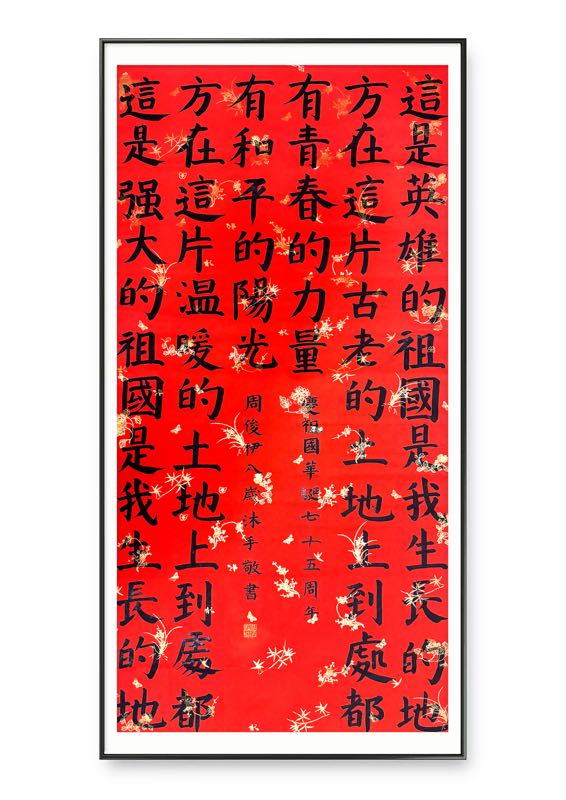 這是英雄的祖國是我生長的地
方在這片古老的土地上到處都
有青春的力量
這是强大的祖國是我生長的地
方在這片温暖的土地上到處都
有和平的陽光
慶祖國華誕七十五周年
周俊伊八歲沐手敬書